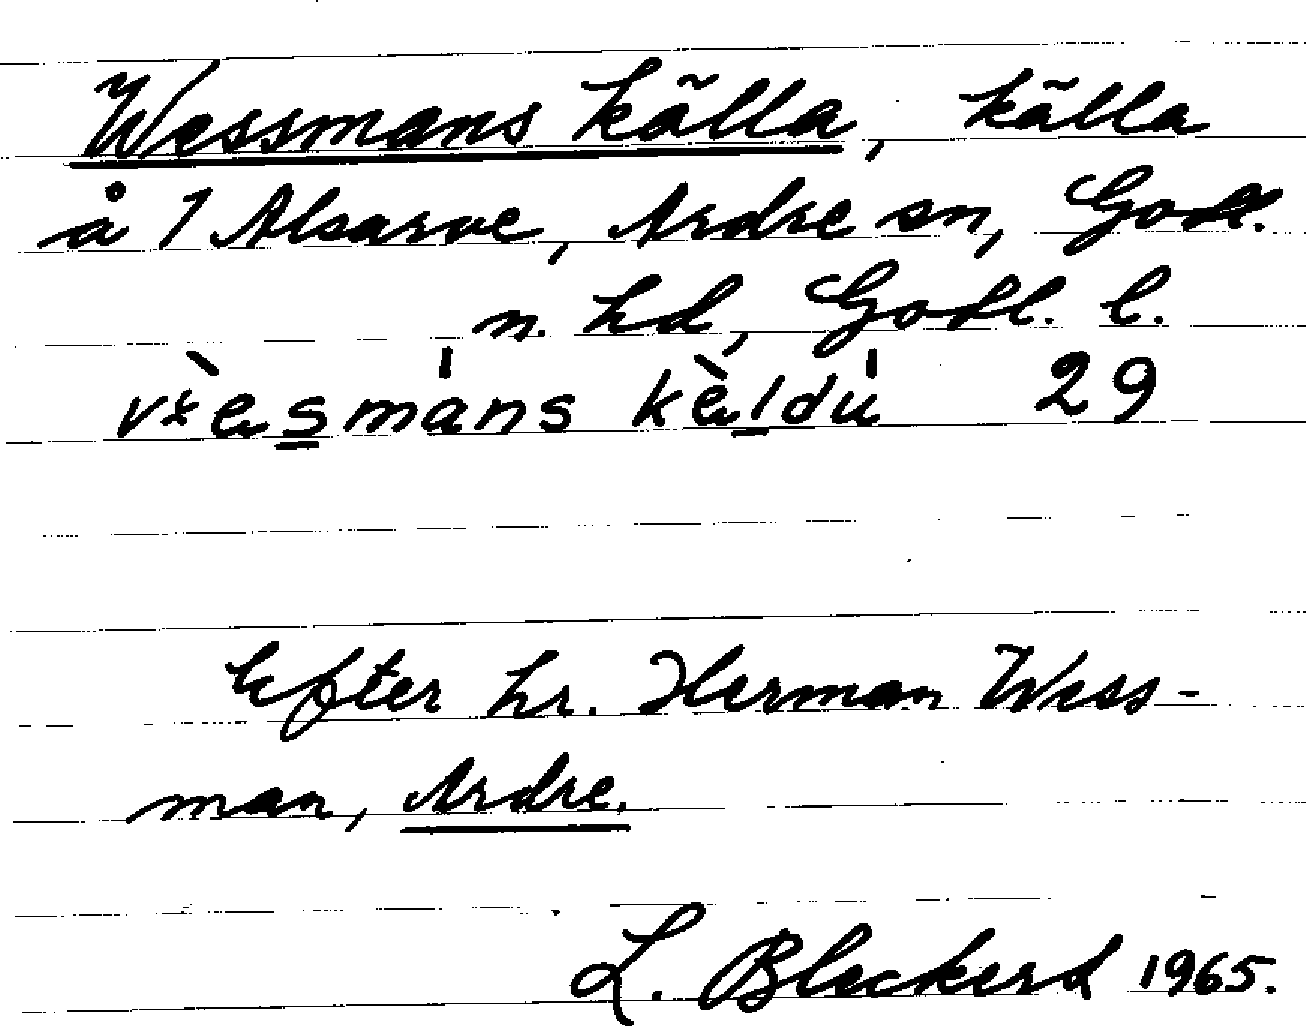 Wessmans källa, källa
å 1 Alsarve, Ardre sn, Gotl.
n. hd, Gotl. l.
29
Efter hr. Herman Wess-
man, Ardre.
L. Bleckert 1965.